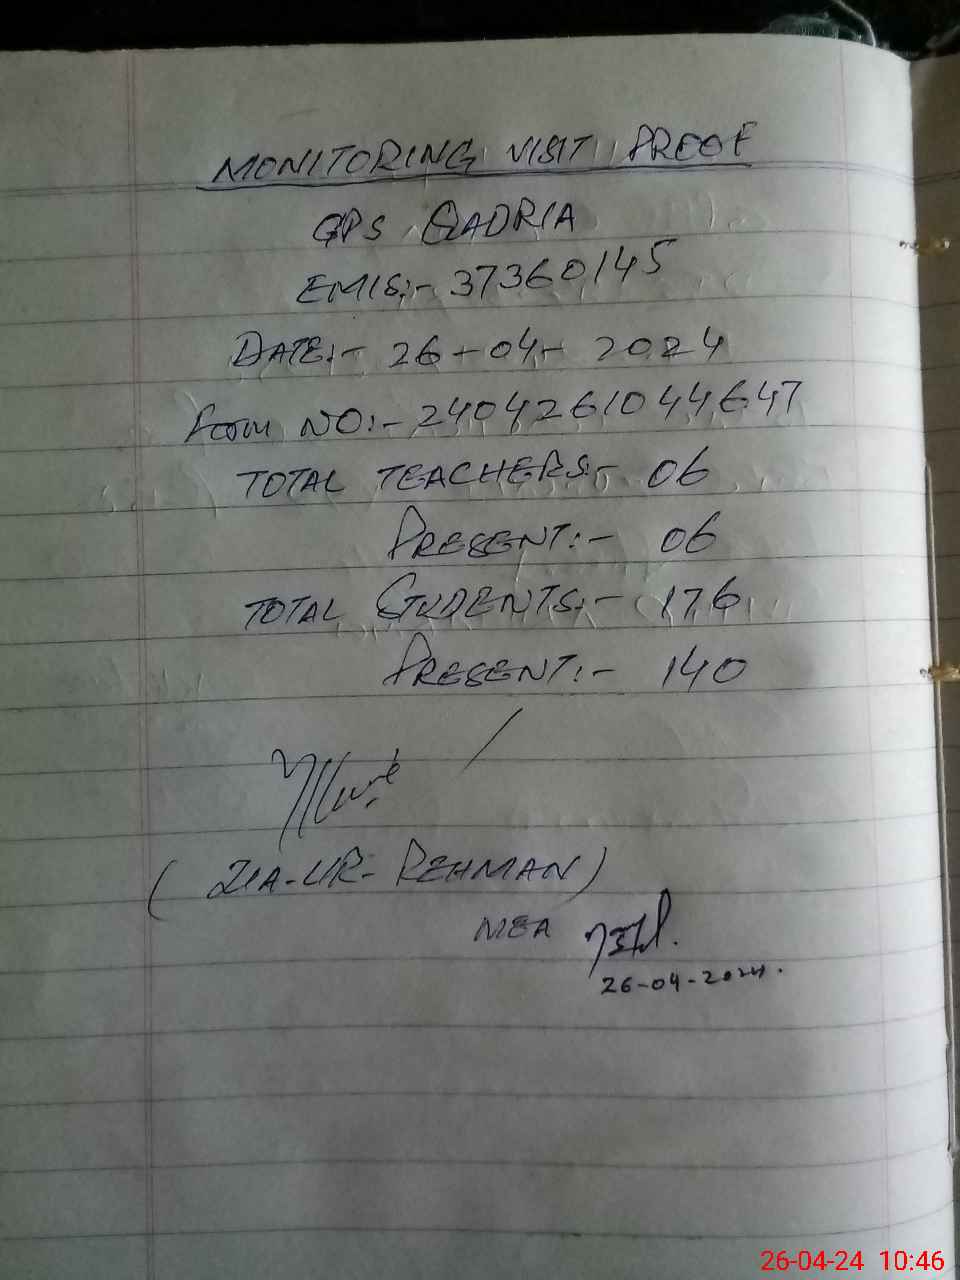 MONITORING VISIT PROOF
GPS QADRIA
EMIS:- 37360145
DATE:- 26-04-2024
Form NO:- 2404261044647
TOTAL TEACHERS:- 06
PRESENT:- 06
TOTAL STUDENTS:- 176
PRESENT:- 140
(ZIA-UR-REHMAN)
MEA
26-04-2024.
26-04-24 10:46